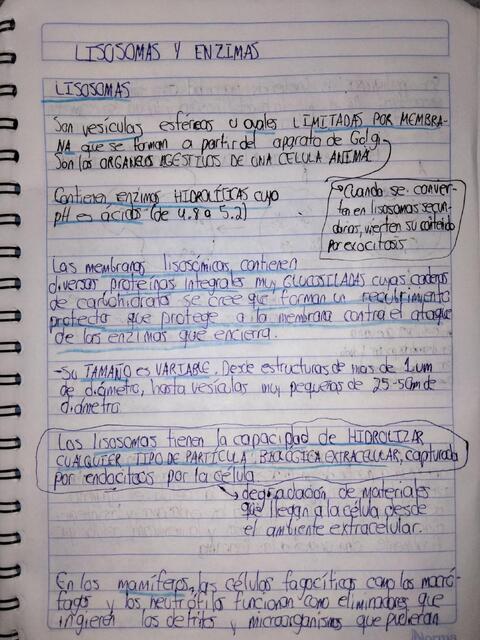 LISOSOMAS Y ENZIMAS
LISOSOMAS
Son vesículas esféreas u ovales LIMITADAS POR MEMBRA-
NA que se forman a partir del aparato de Golgi.
Son los ORGANELOS DIGESTIVOS DE UNA CELULA ANIMAL
Contienen enzimas HIDROLÍTICAS cuyo
pH es ácidos (de 4.8 a 5.2)
Cuando se convier-
ten en lisosomas secun-
darios, vierten su contenido
por exocitosis
Las membranas lisosómicas contienen
diversas proteínas integrales muy GLUCOSILADAS cuyas cadenas
de carbohidratos se cree que forman un recubrimiento
protector que protege a la membrana contra el ataque
de las enzimas que encierra.
-Su TAMAÑO es VARIABLE. Desde estructuras de mas de 1um
de diámetro, hasta vesículas muy pequeñas de 25-50nm de
diámetro
Los lisosomas tienen la capacidad de HIDROLIZAR
CUALQUIER TIPO DE PARTÍCULA BIOLÓGICA EXTRACELULAR, capturada
por endocitosis por la célula
degradación de materiales
que llegan a la célula desde
el ambiente extracelular.
En los mamíferos, las células fagocíticas como los macró-
fagos y los neutrófilos funcionan como eliminadores que
ingieren los detritos y microorganismos que pudieran
Norma